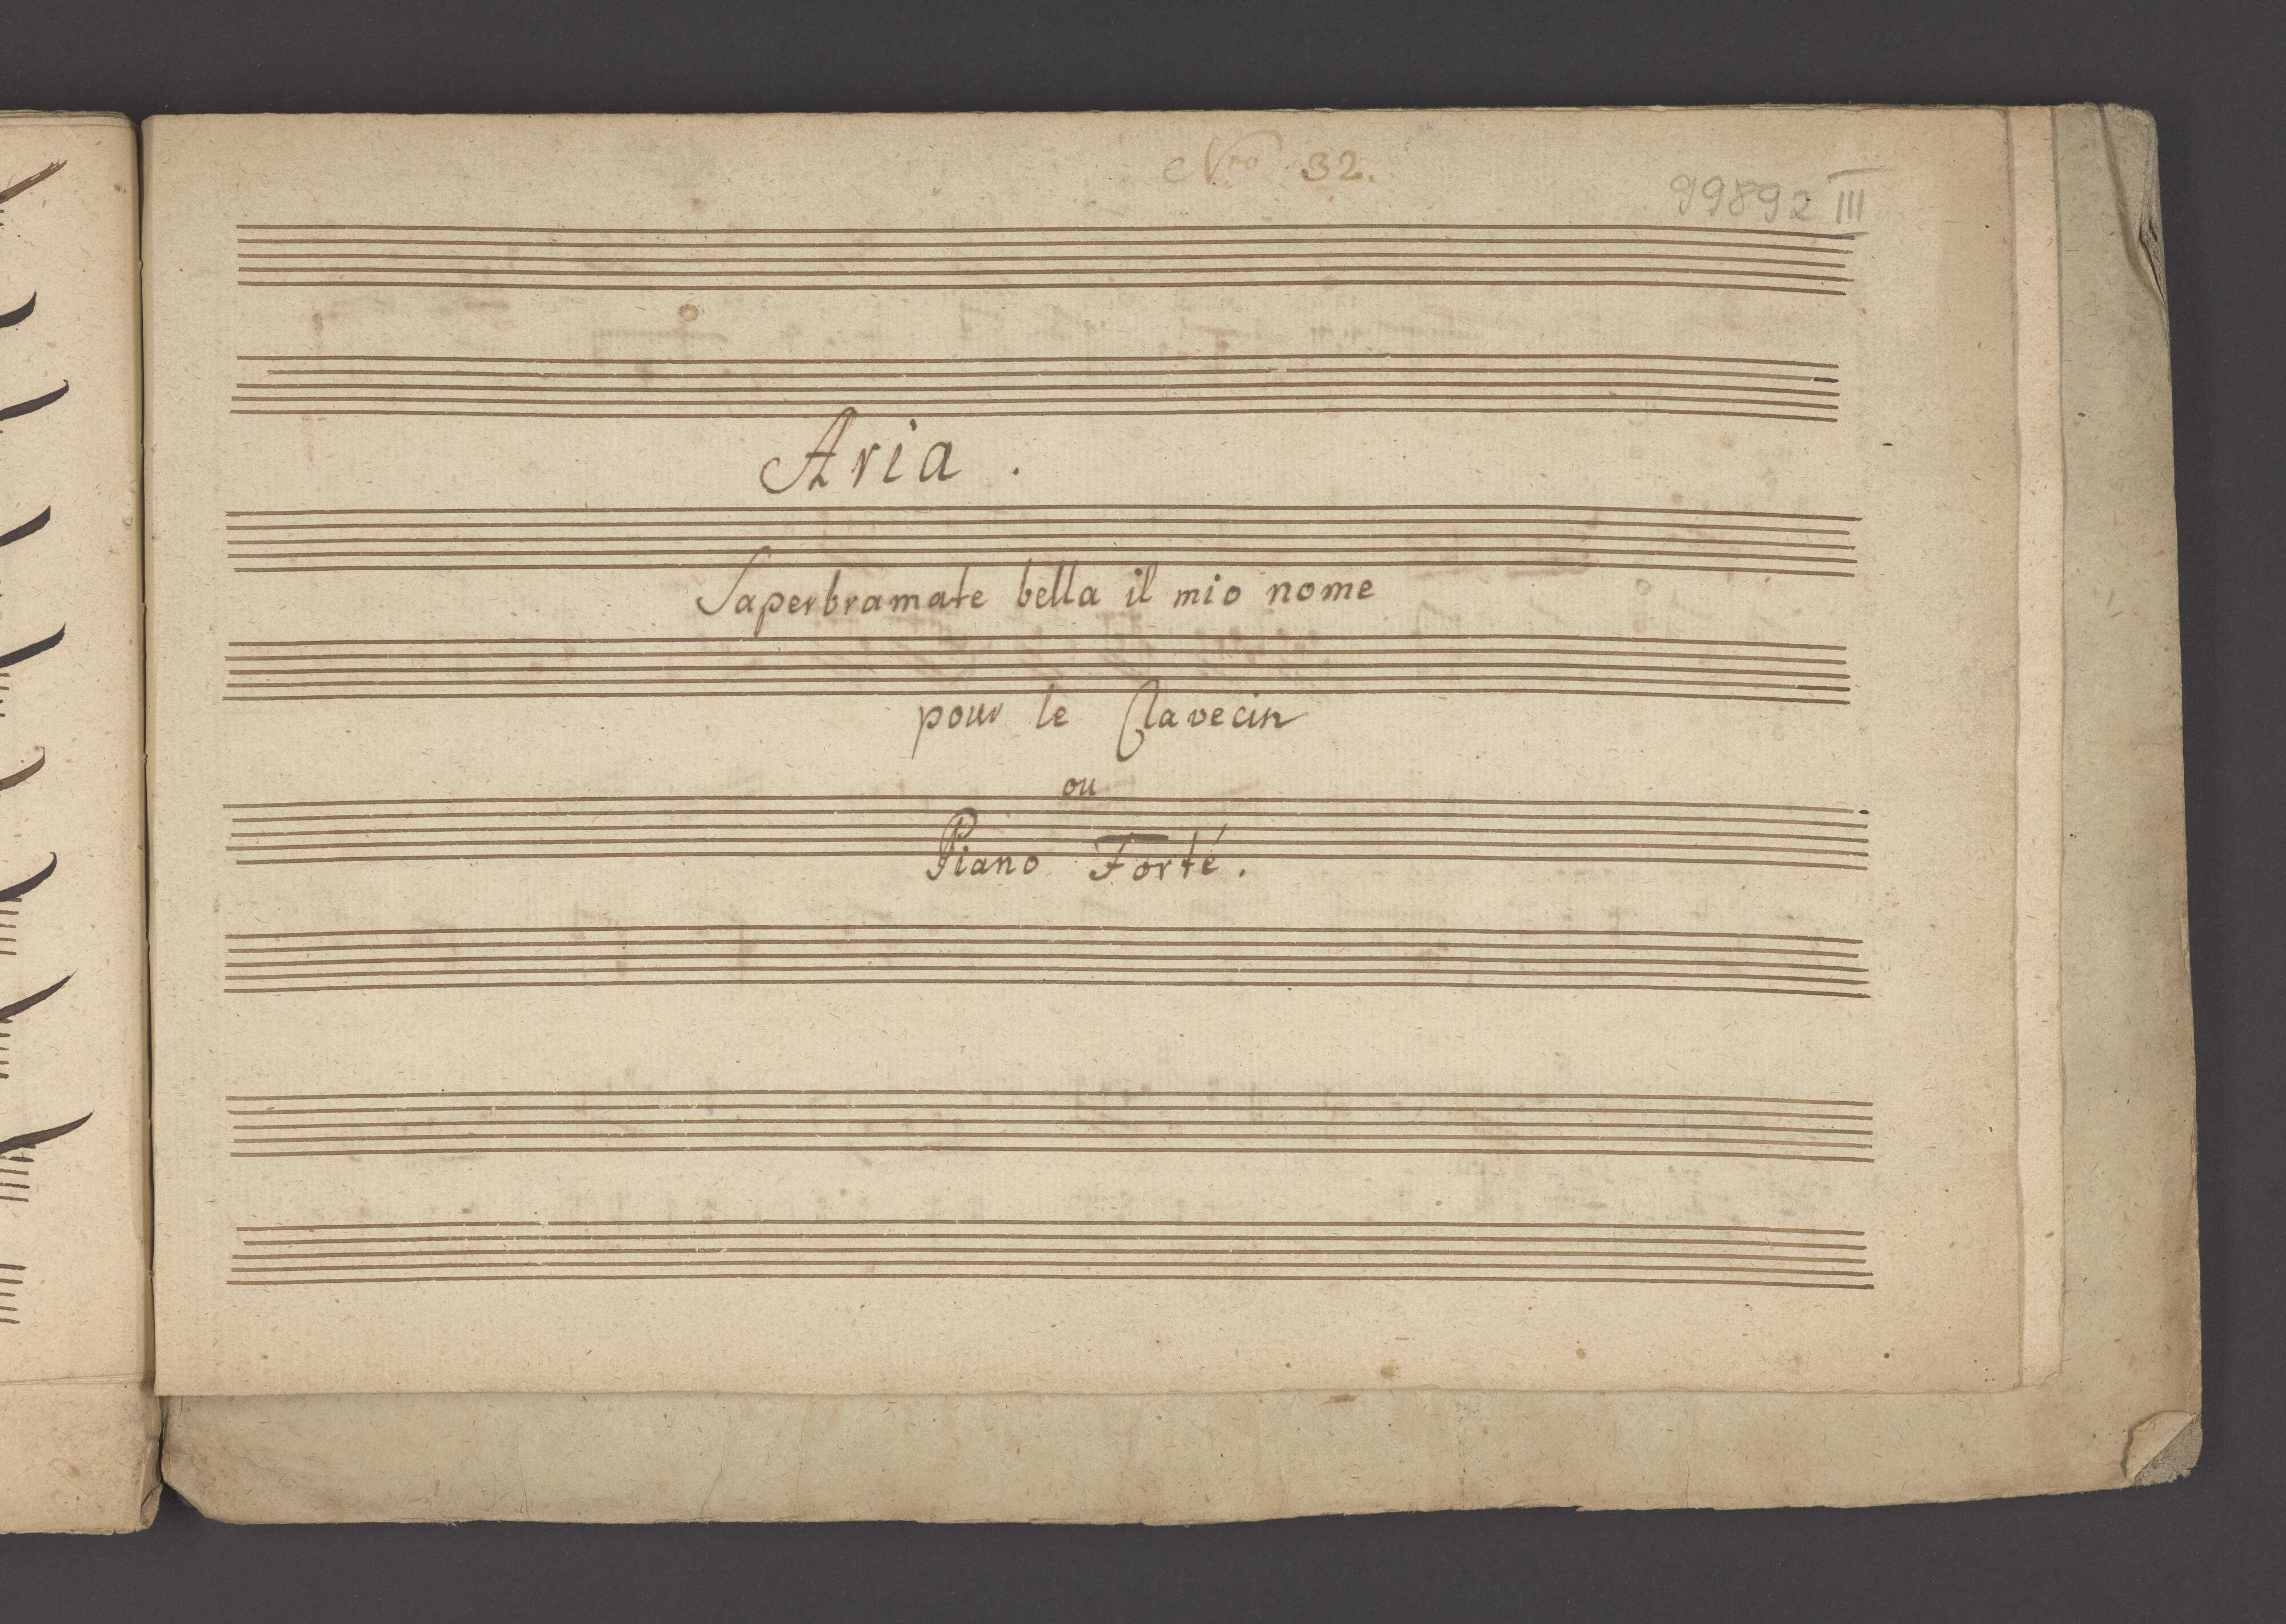 Nro 32.
99892 III
Aria .
Saperbramate bella il mio nome
pour le Clavecin
ou
Piano Forté .